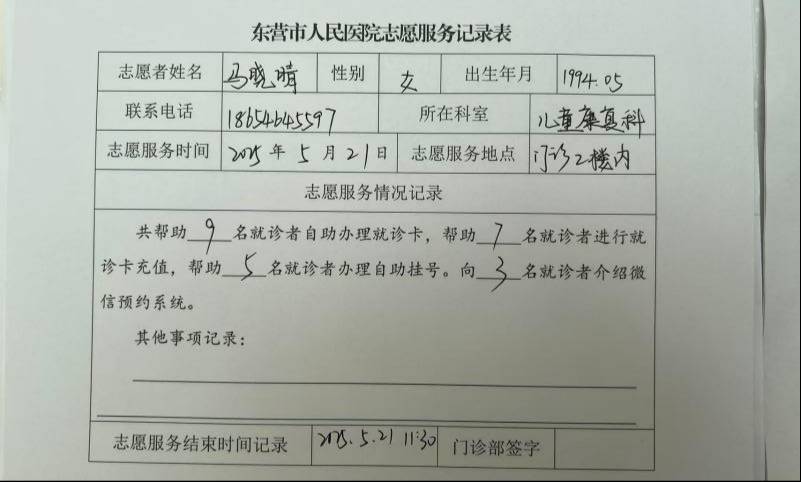 东营市人民医院志愿服务记录表
志愿者姓名 马晓晴 性别 女 出生年月 1994.05
联系电话 18654645597 所在科室 儿童康复科
志愿服务时间 2025 年 5 月 21 日 志愿服务地点 门诊2楼内
志愿服务情况记录
共帮助 9 名就诊者自助办理就诊卡，帮助 7 名就诊者进行就
诊卡充值，帮助 5 名就诊者办理自助挂号。向 3 名就诊者介绍微
信预约系统。
其他事项记录：
志愿服务结束时间记录 2025.5.21 11:30 门诊部签字